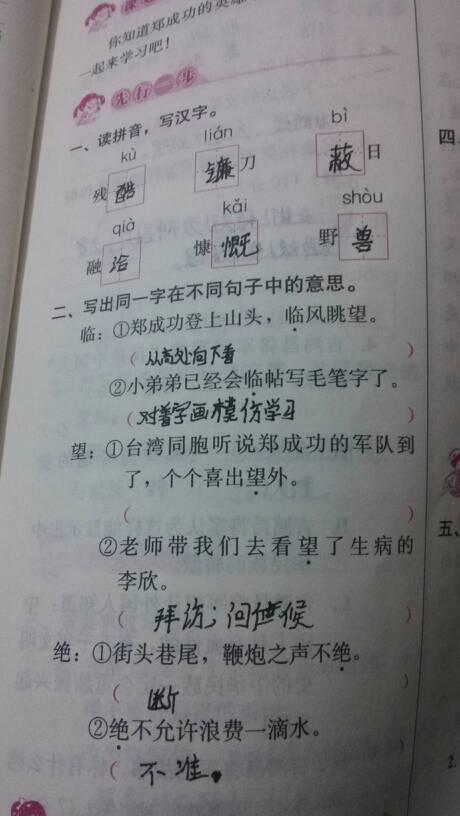 你知道郑成功的英雄
一起来学习吧！
先行一步
一、读拼音，写汉字。
kù lián bì
残酷 镰刀 蔽日
qià kǎi shòu
融洽 慷慨 野兽
二、写出同一字在不同句子中的意思。
临：①郑成功登上山头，临风眺望。
（从高处向下看）
②小弟弟已经会临帖写毛笔字了。
（对着字画模仿学习）
望：①台湾同胞听说郑成功的军队到
了，个个喜出望外。
（ ）
②老师带我们去看望了生病的
李欣。
（拜访；问候）
绝：①街头巷尾，鞭炮之声不绝。
（断）
②绝不允许浪费一滴水。
（不准。）
四、
五、
2.